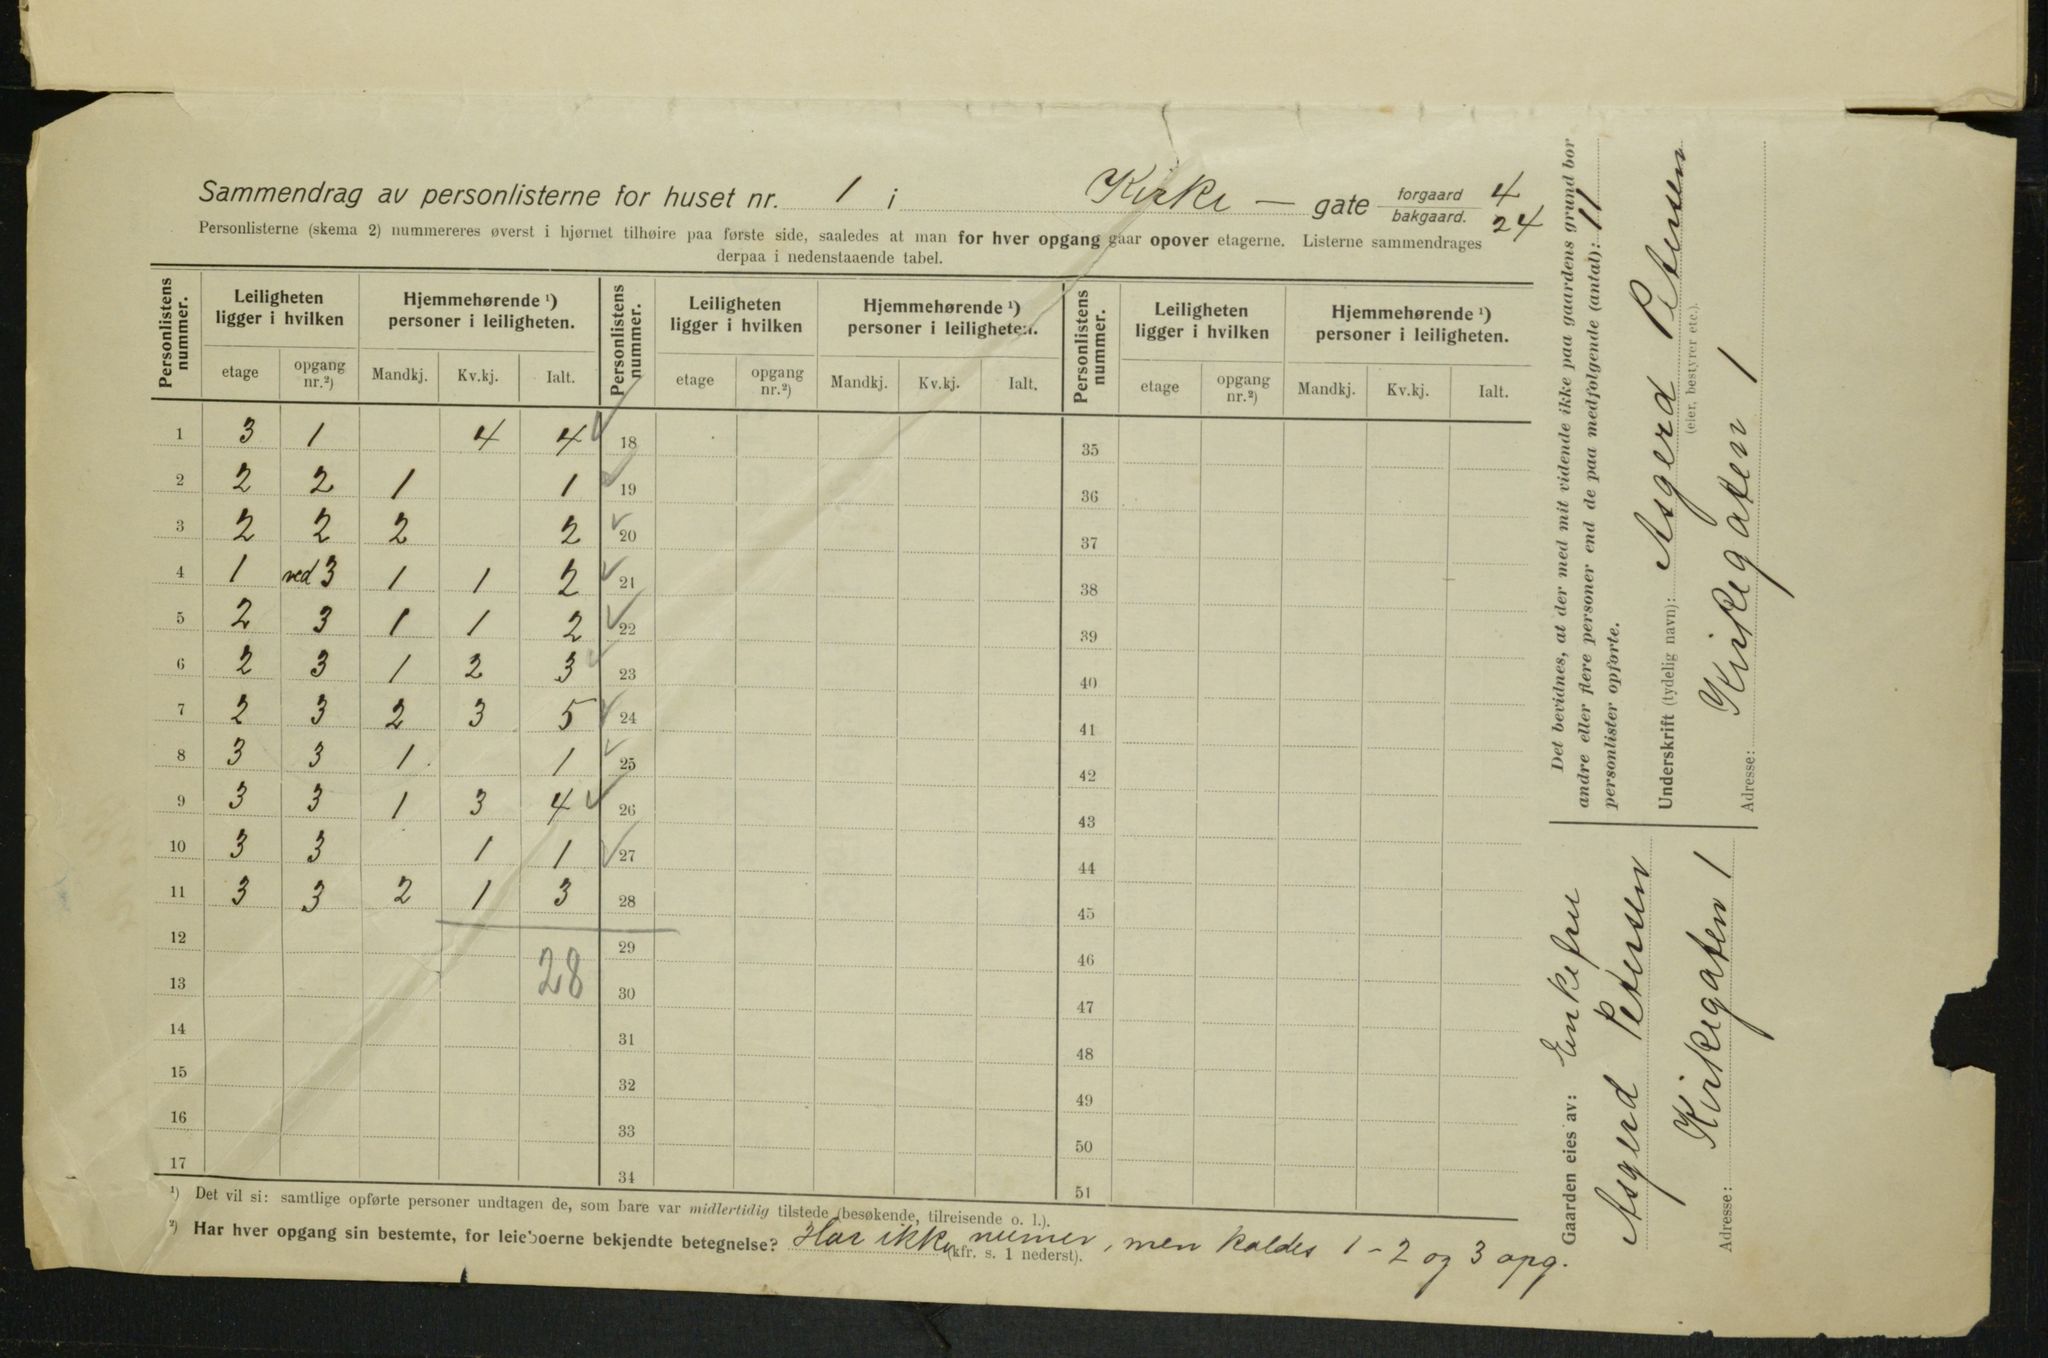 Sammendrag av personlisterne for huset nr. 1 i Kirke — gate forgaard 4
bakgaard. 24
Personlisterne (skema 2) nummereres øverst i hjørnet tilhøire paa første side, saaledes at man for hver opgang gaar opover etagerne. Listerne sammendrages
derpaa i nedenstaaende tabel.
Personlistens nummer. Leiligheten ligger i hvilken Hjemmehørende ¹) personer i leiligheten. Personlistens nummer. Leiligheten ligger i hvilken Hjemmehørende ¹) personer i leiligheten. Personlistens nummer. Leiligheten ligger i hvilken Hjemmehørende ¹) personer i leiligheten.
etage opgang nr.²) Mandkj. Kv.kj. Ialt. etage opgang nr.²) Mandkj. Kv.kj. Ialt. etage opgang nr.²) Mandkj. Kv.kj. Ialt.
1 3 1 4 4 ✓ 18 35
2 2 2 1 1 ✓ 19 36
3 2 2 2 2 ✓ 20 37
4 1 ved 3 1 1 2 ✓ 21 38
5 2 3 1 1 2 ✓ 22 39
6 2 3 1 2 3 ✓ 23 40
7 2 3 2 3 5 ✓ 24 41
8 3 3 1 1 ✓ 25 42
9 3 3 1 3 4 ✓ 26 43
10 3 3 1 1 ✓ 27 44
11 3 3 2 1 3 28 45
12 29 46
13 28 30 47
14 31 48
15 32 49
16 33 50
17 34 51
¹) Det vil si: samtlige opførte personer undtagen de, som bare var midlertidig tilstede (besøkende, tilreisende o. l.).
²) Har hver opgang sin bestemte, for leieboerne bekjendte betegnelse? Har ikke numer, men kaldes 1 - 2 og 3 opg.
(kfr. s. 1 nederst).
Det bevidnes, at der med mit vidende ikke paa gaardens grund bor
andre eller flere personer end de paa medfølgende (antal): 11
personlister opførte.
Underskrift (tydelig navn): Asgerd Petersen
(eier, bestyrer etc.).
Adresse: Kirkegaten 1
Gaarden eies av: Enkefru
Asgerd Petersen
Adresse: Kirkegaten 1